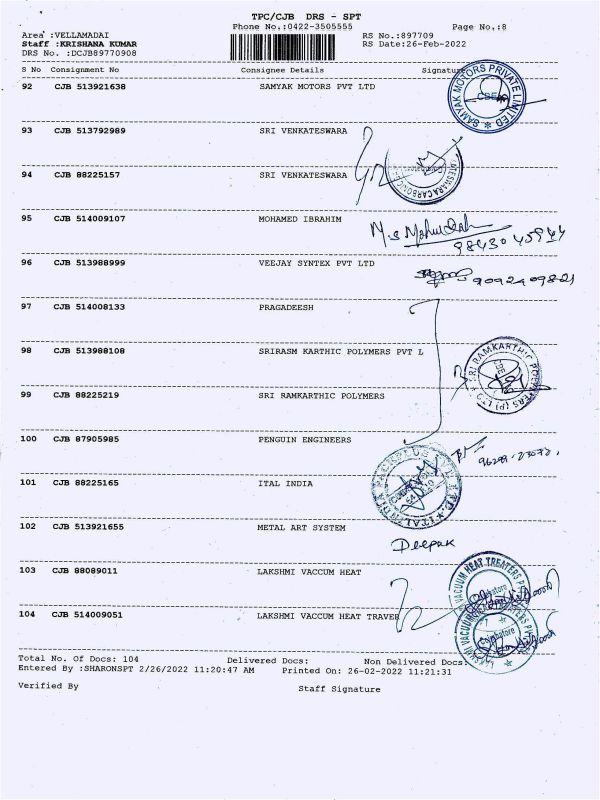 TPC/CJB DRS - SPT
Phone No.:0422-3505555 Page No.:8
Area :VELLAMADAI RS No.:897709
Staff :KRISHANA KUMAR RS Date:26-Feb-2022
DRS No. :DCJB89770908
S No Consignment No Consignee Details Signature
92 CJB 513921638 SAMYAK MOTORS PVT LTD
SAMYAK MOTORS PRIVATE LIMITED
93 CJB 513792989 SRI VENKATESWARA
94 CJB 88225157 SRI VENKATESWARA
95 CJB 514009107 MOHAMED IBRAHIM
98430 45944
96 CJB 513988999 VEEJAY SYNTEX PVT LTD
9092409821
97 CJB 514008133 PRAGADEESH
98 CJB 513988108 SRIRASM KARTHIC POLYMERS PVT L
SRI RAMKARTHIC POLYMERS (P) LTD
99 CJB 88225219 SRI RAMKARTHIC POLYMERS
100 CJB 87905985 PENGUIN ENGINEERS
101 CJB 88225165 ITAL INDIA
102 CJB 513921655 METAL ART SYSTEM
Deepak
103 CJB 88089011 LAKSHMI VACCUM HEAT
VACUUM HEAT TREATERS
104 CJB 514009051 LAKSHMI VACCUM HEAT TRAVER
Coimbatore
Total No. Of Docs: 104 Delivered Docs: Non Delivered Docs:
Entered By :SHARONSPT 2/26/2022 11:20:47 AM Printed On: 26-02-2022 11:21:31
Verified By Staff Signature